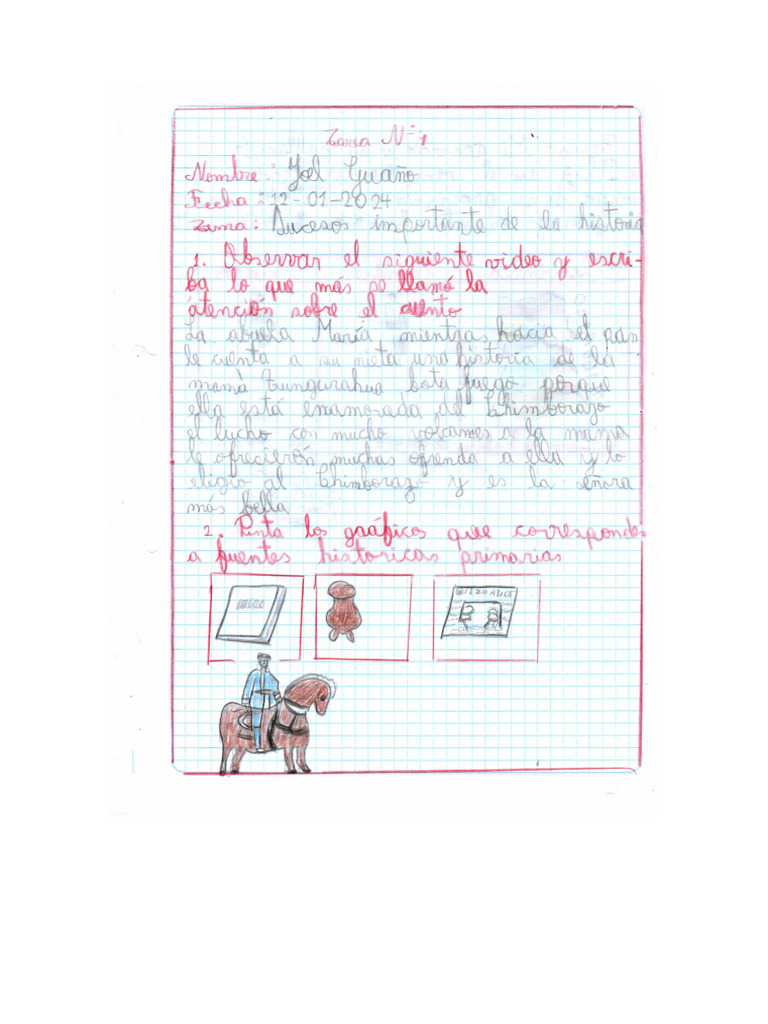 Tarea N° 1
Nombre: Joel Guaño
Fecha: 12-01-2024
Tema: Sucesos importante de la historia
1. Observar el siguiente video y escri-
ba lo que más se llamó la
atención sobre el cuento
La abuela María mientras hacia el pan
le cuenta a su nieta una historia de la
mamá Tungurahua bota fuego porque
ella está enamorada del Chimborazo
el lucho con mucho volcames a la manza
le ofrecierón muchas ofrenda a ella y lo
eligio al Chimborazo y es la eñora
más bella
2. Pinta los gaáficos que corresponden
a fuentes historicas primarias